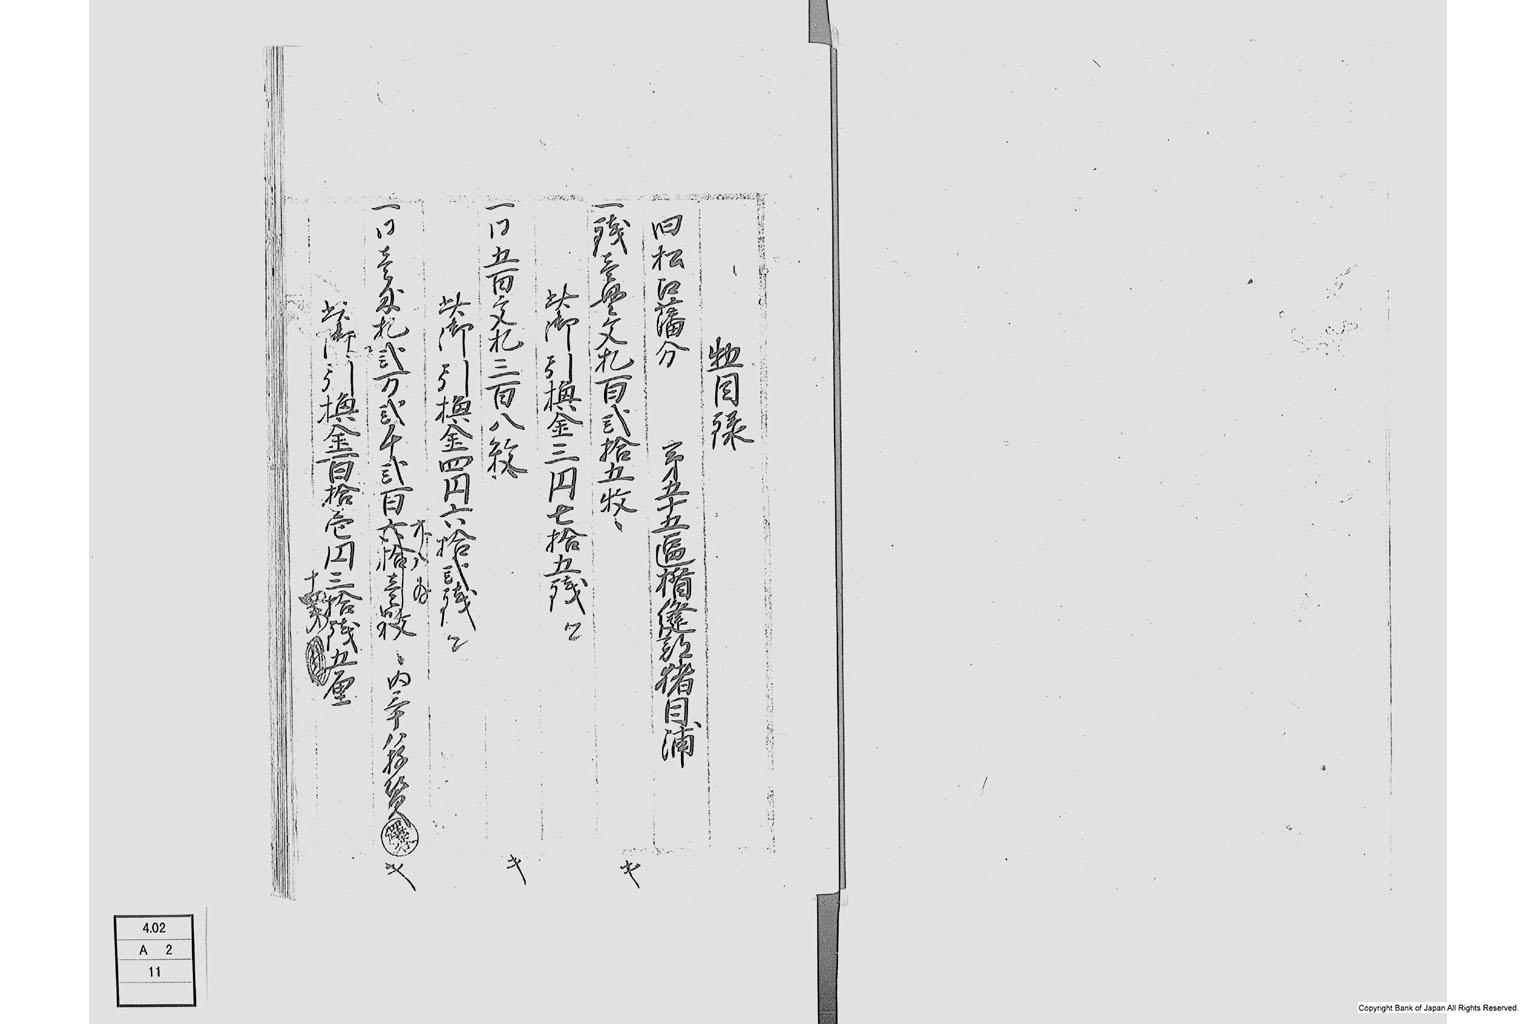 惣目録
旧松江藩分　第五十五區楯縫郡猪目浦
一残壹貫文札百弐拾五枚
此御引換金三円七拾五残
一同五百文札三百八枚
此御引換金四円六拾弐残
一同壹匁札弐万弐千弐百六拾壹枚
此御引換金百拾壱円三拾残五厘
4.02
A 2
11
Copyright Bank of Japan All Rights Reserved.